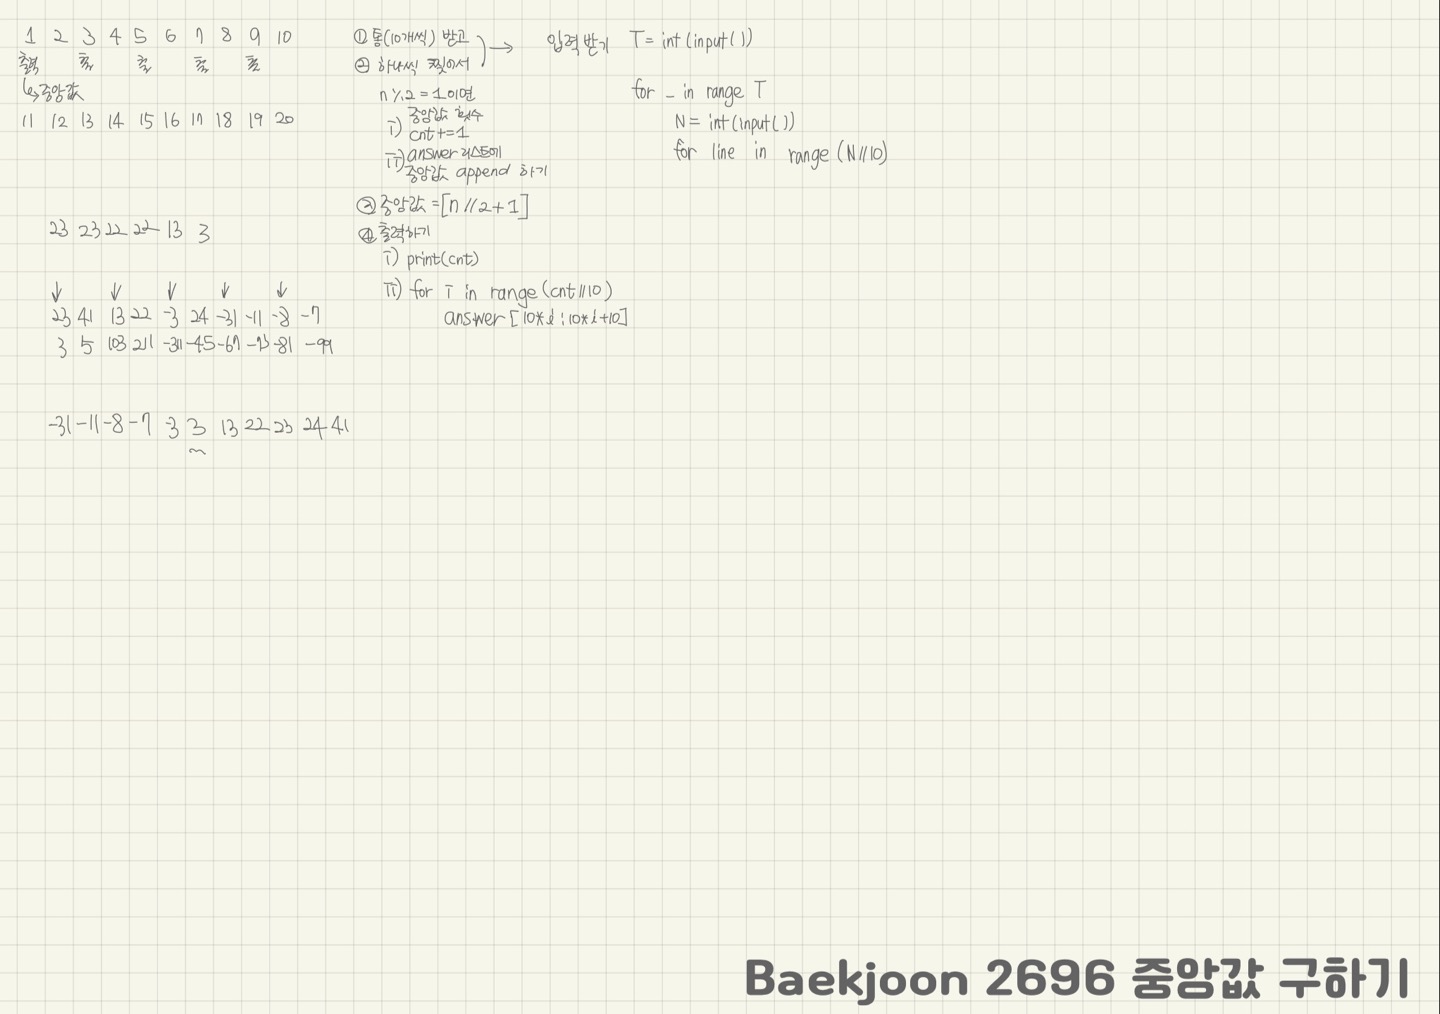 1 2 3 4 5 6 7 8 9 10
출력 출력 출력 출력 출력
↳ 중앙값
11 12 13 14 15 16 17 18 19 20
23 23 22 22 13 3
↓ ↓ ↓ ↓ ↓
23 41 13 22 -3 24 -31 -11 -8 -7
3 5 103 211 -311 -45 -67 -73 -81 -99
-31 -11 -8 -7 -3 3 13 22 23 24 41
① 통(10개씩) 받고
② 하나씩 찢어서
n%2 = 1이면
중앙값 횟수
i) cnt += 1
ii) answer 리스트에
중앙값 append 하기
③ 중앙값 = [n//2+1]
④ 출력하기
i) print(cnt)
ii) for i in range(cnt//10)
answer[10*i:10*i+10]
→ 입력 받기
T = int(input())
for _ in range T
N = int(input())
for line in range(N//10)
Baekjoon 2696 중앙값 구하기